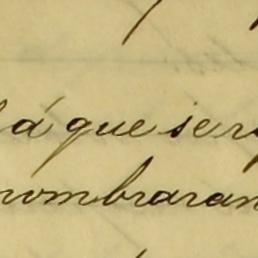 á que ser
nombraran